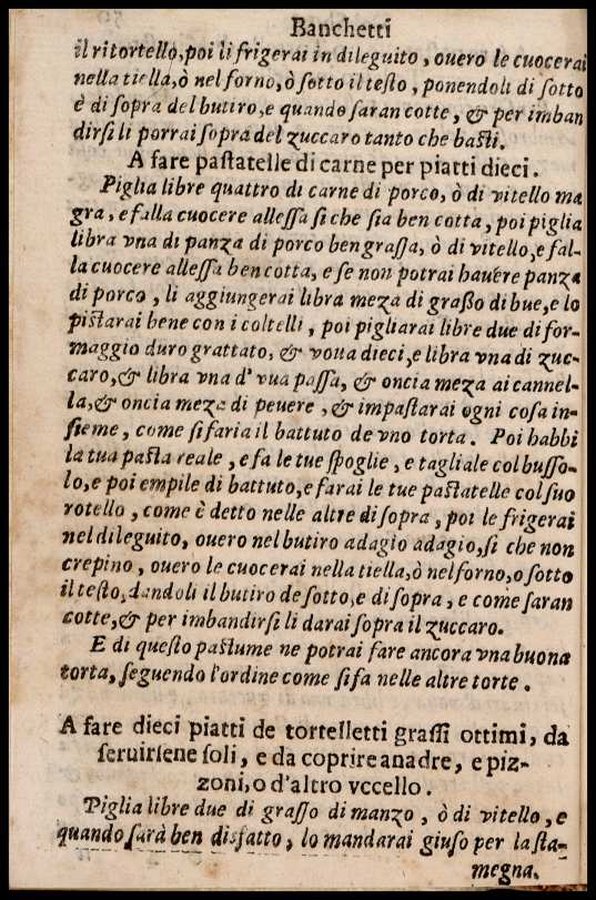 Banchetti
il ritortello, poi li frigerai in dileguito, ouero le cuocerai
nella tiella, ò nel forno, ò sotto il testo, ponendoli di sotto
è di sopra del butiro, e quando saran cotte, & per imban
dirsi li porrai sopra del zuccaro tanto che basti.
A fare pastatelle di carne per piatti dieci.
Piglia libre quattro di carne di porco, ò di vitello ma
gra, e falla cuocere allessa si che sia ben cotta, poi piglia
libra vna di panza di porco ben grassa, ò di vitello, e fal-
la cuocere allessa ben cotta, e se non potrai hauere panza
di porco, li aggiungerai libra meza di grasso di bue, e lo
pistarai bene con i coltelli, poi pigliarai libre due di for-
maggio duro grattato, & voua dieci, e libra vna di zuc-
caro, & libra vna d'vua passa, & oncia meza ai cannel-
la, & oncia meza di peuere, & impastarai ogni cosa in-
sieme, come si faria il battuto de vno torta. Poi habbi
la tua pasta reale, e fa le tue spoglie, e tagliale col busso-
lo, e poi empile di battuto, e farai le tue pastatelle col suo
rotello, come è detto nelle altre di sopra, poi le frigerai
nel dileguito, ouero nel butiro adagio adagio, si che non
crepino, ouero le cuocerai nella tiella, ò nel forno, o sotto
il testo, dandoli il butiro de sotto, e di sopra, e come saran
cotte, & per imbandirsi li darai sopra il zuccaro.
E di questo pastume ne potrai fare ancora vna buona
torta, seguendo l'ordine come si fa nelle altre torte.
A fare dieci piatti de tortelletti grassi ottimi, da
seruirsene soli, e da coprire anadre, e piz-
zoni, o d'altro vccello.
Piglia libre due di grasso di manzo, ò di vitello, e
quando sarà ben disfatto, lo mandarai giuso per la sta-
megna.